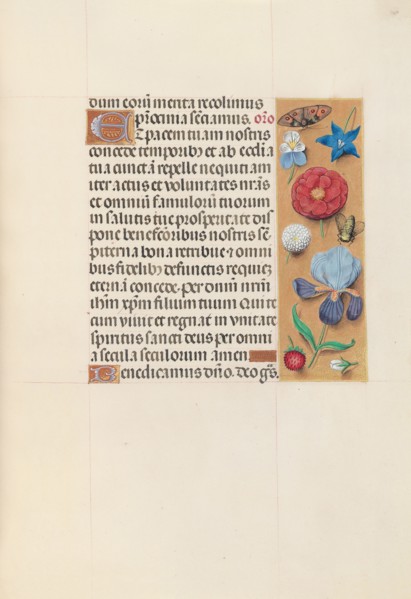 dum eorū merita recolimus
p̄cinia sēciamus. oro
Et pacem tuam nostris
concede temporibꝫ et ab ecclīa
tua cunctam repelle nequitiam
iter actus et voluntates nr̄as
et omniū famulorū tuorum
in salutis tue prosperitate dis
pone benefcōribus nostris sē
piterna bona retribue ⁊ omni
bus fidelibꝫ defunctis requiēz
eternā concede. Per dnm̄ nrm̄
ihm̄ xp̄m filium tuum Qui te
cum vivit et regnat in vnitate
spiritus sancti deus per omni
a secula seculorum amen.
Benedicamus dn̄o. deo gr̄s.